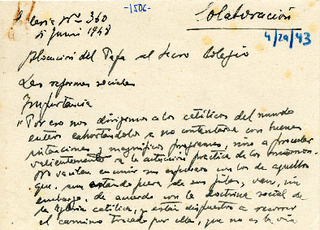 -1506-
Colaboración
4/29/43
Nº 360
5 junio 1948
Alocución del Papa al Sacro Colegio
Las reformas sociales
Importancia
"Por eso nos dirigimos a los católicos del mundo
entero exhortándoles a no contentarse con buenas
intenciones y magníficos programas, sino a proceder
valientemente a la actuación práctica de los mismos.
No vacilen en unir sus esfuerzos con los de aquellos
que, aun estando fuera de sus filas, van, sin
embargo, de acuerdo con la doctrina social de
la Iglesia católica, y están dispuestos a recorrer
el camino trazado por ella, que no es la vía